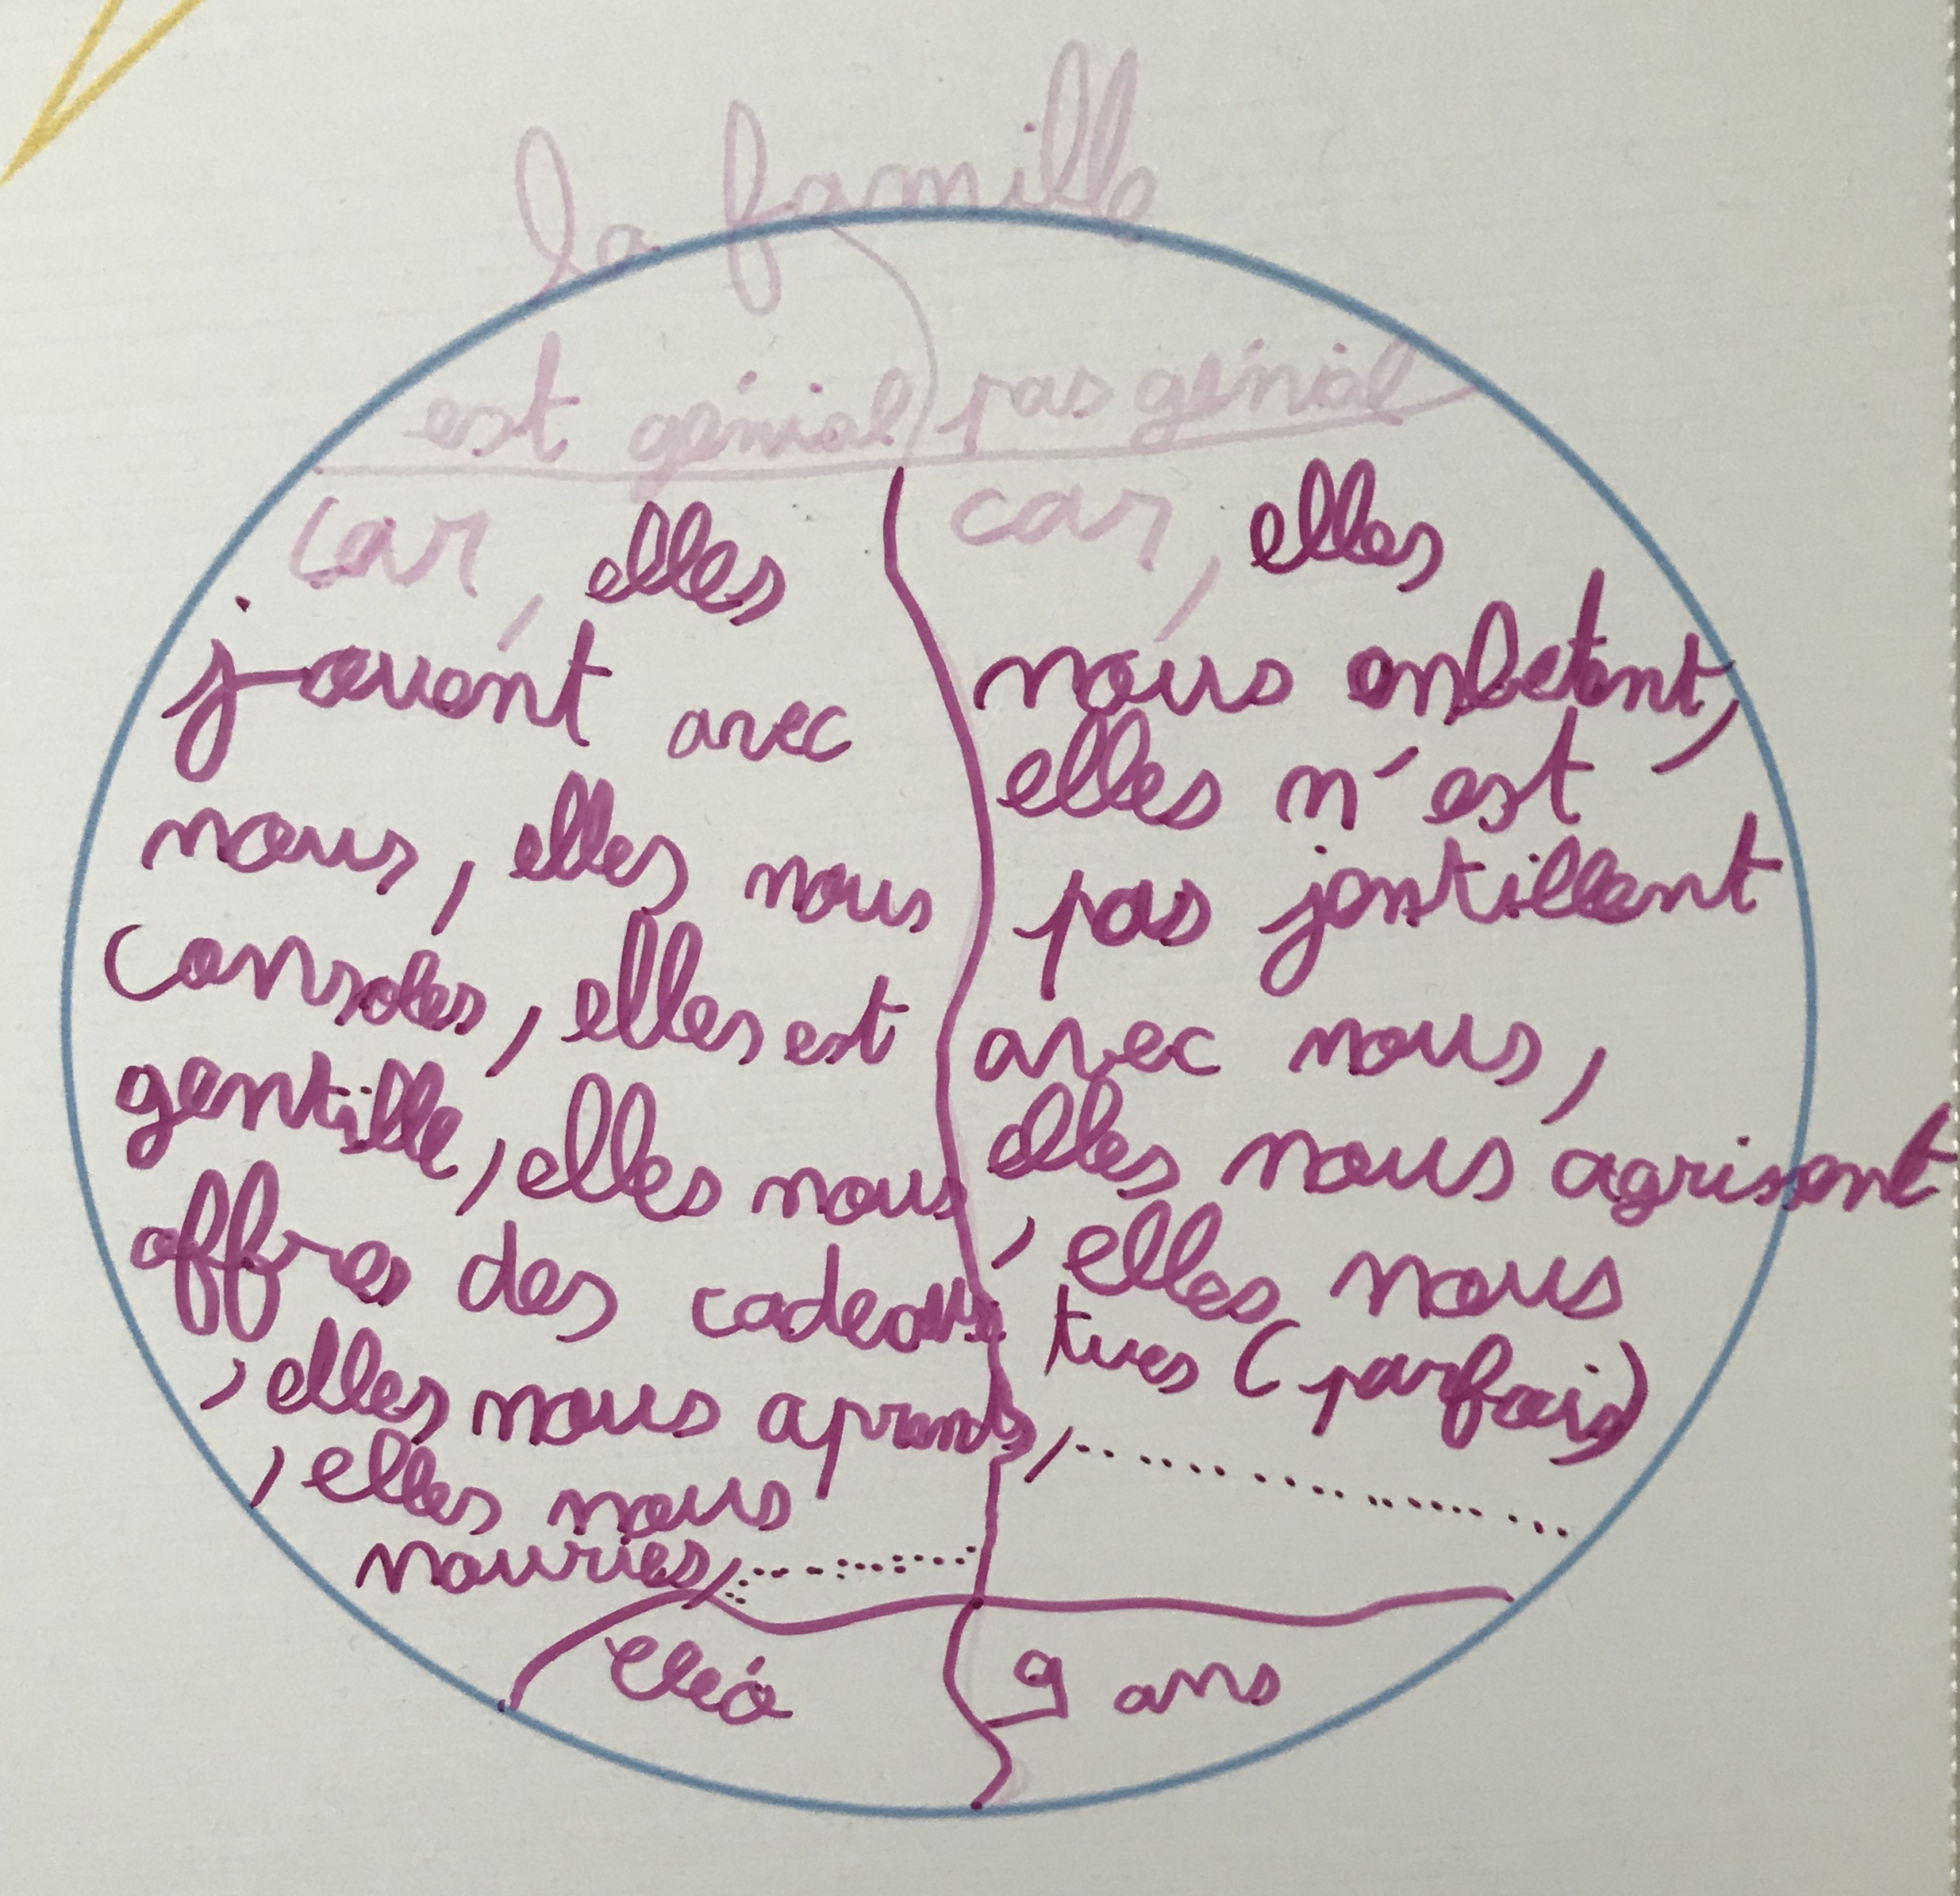 la famille
est génial
car, elles
jouont avec
nous, elles nous
consoles, elles est
gentille, elles nous
offres des cadeaux
, elles nous aprends,
, elles nous
nourries,
pas génial
car, elles
nous enbetent,
elles n'est
pas jentillent
avec nous,
elles nous agrisent
, elles nous
tues (parfais)
9 ans